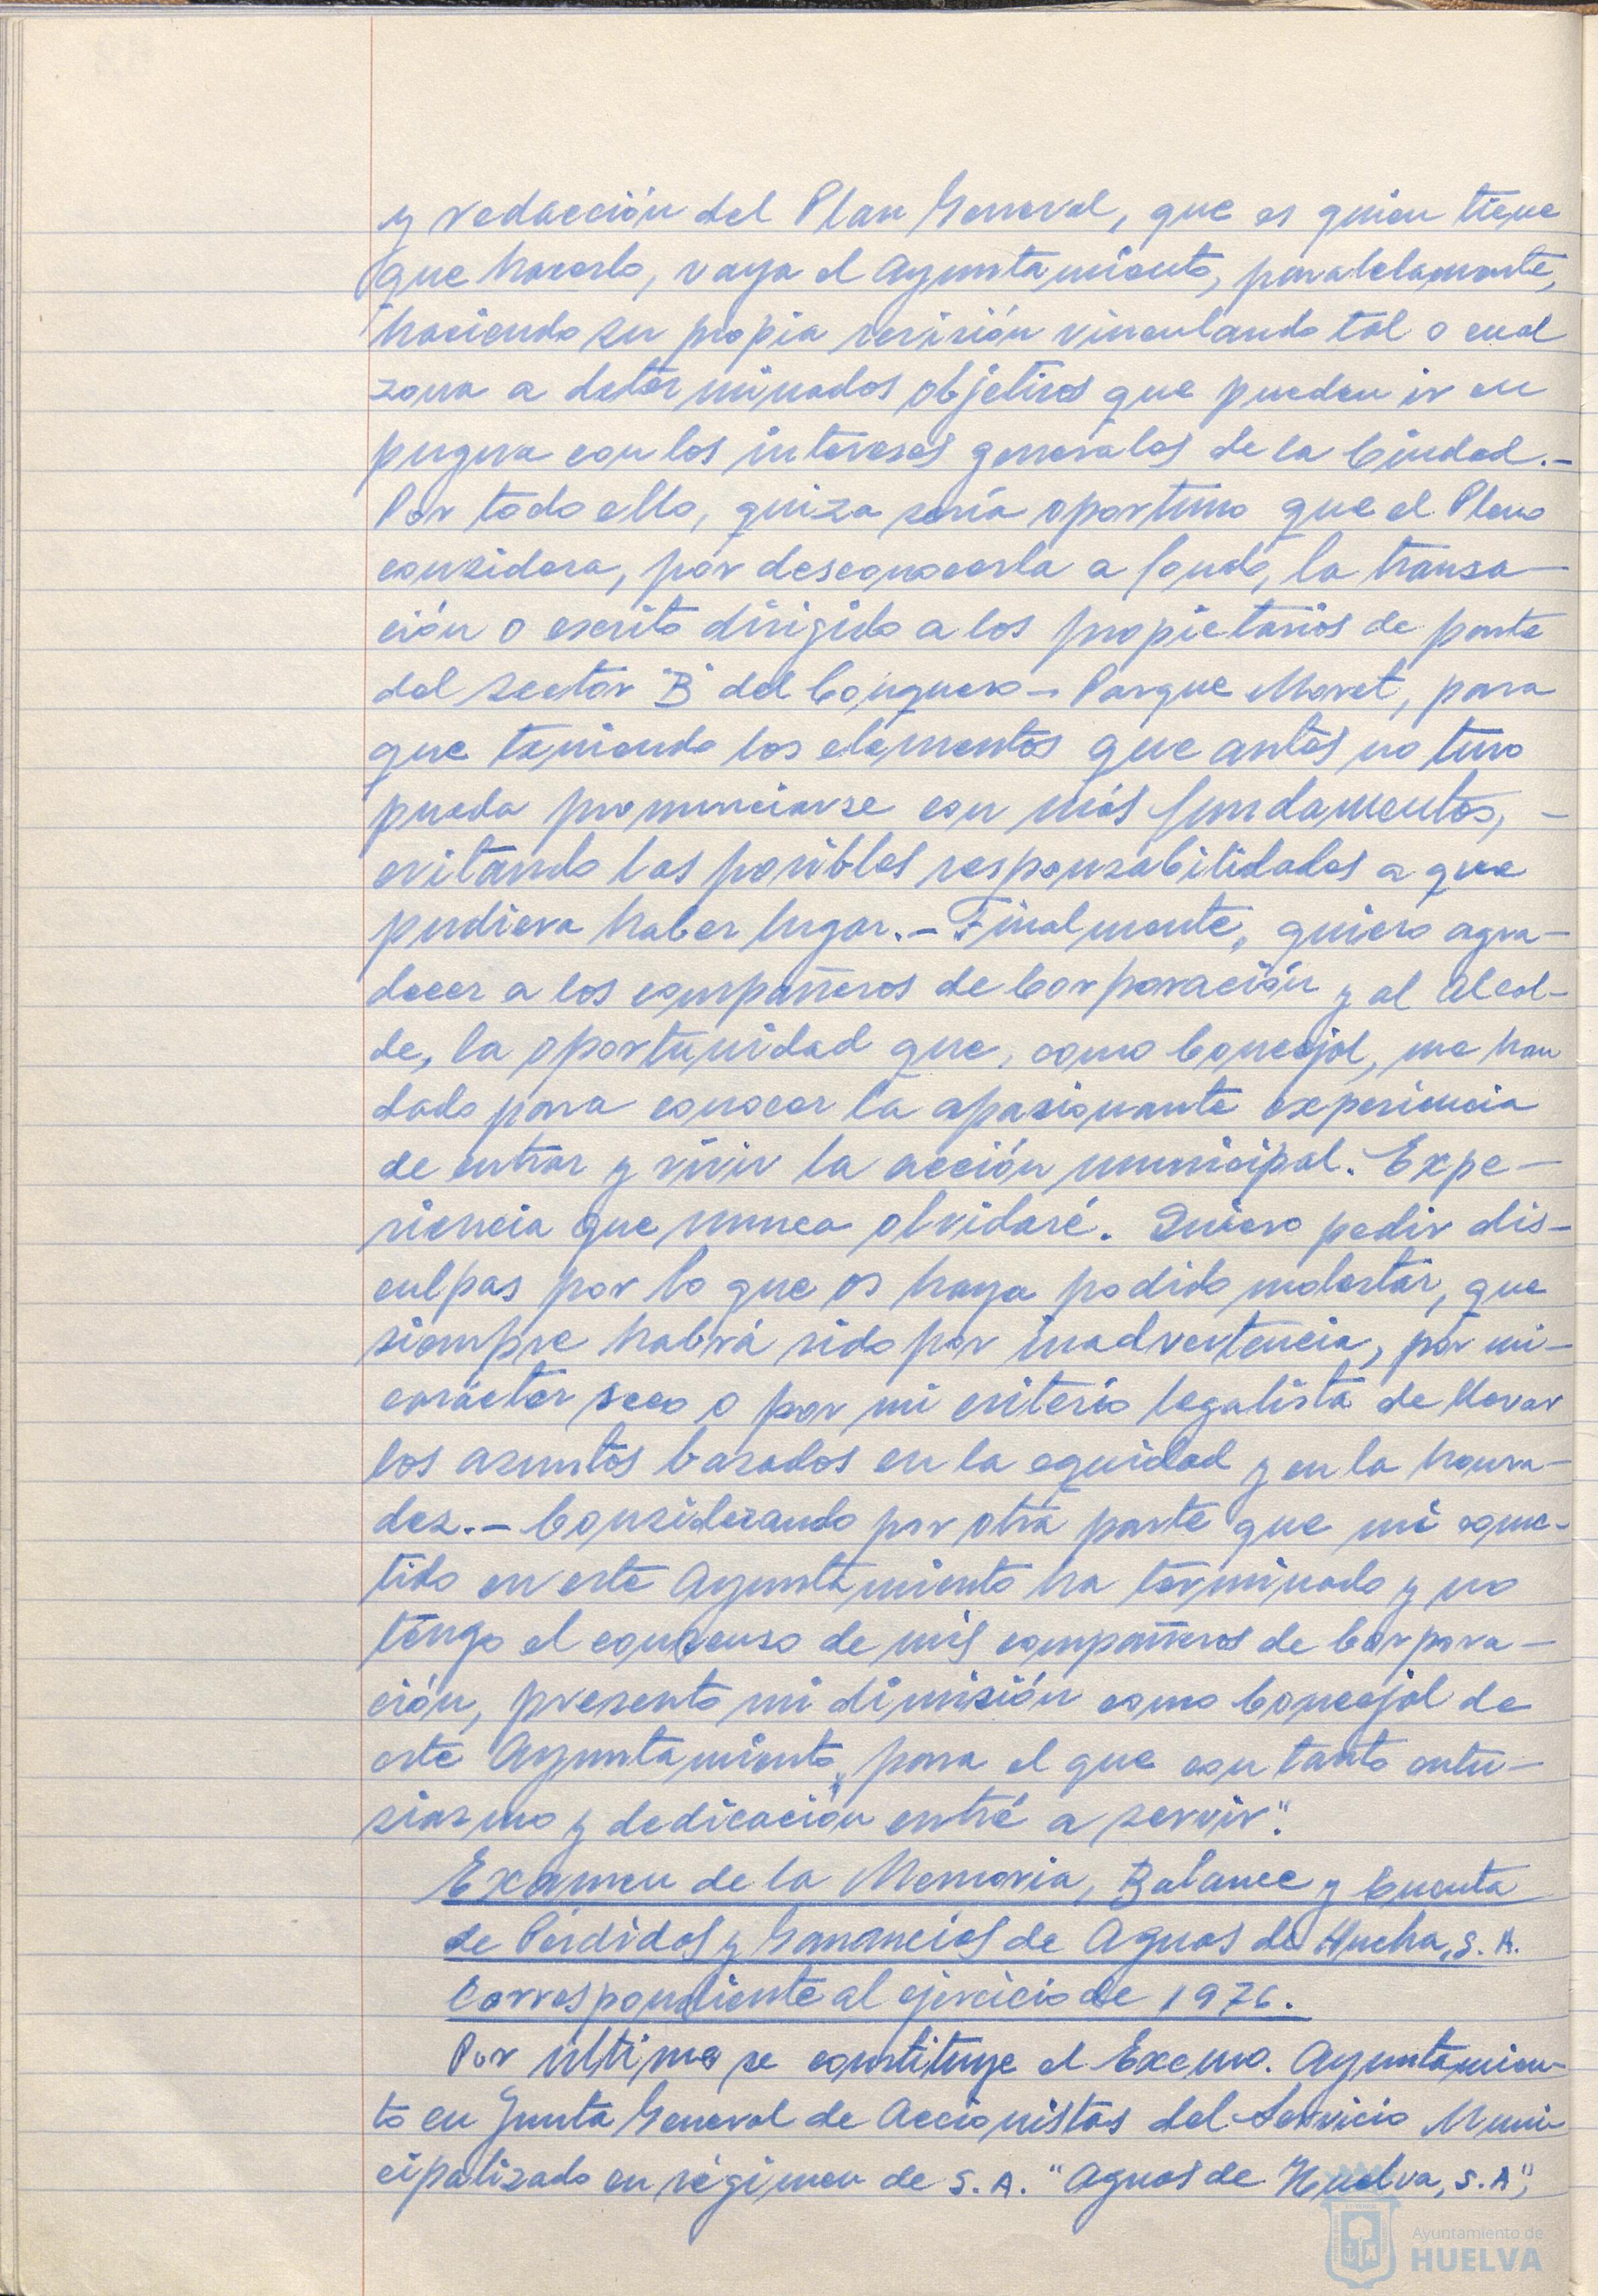 y redacción del Plan General, que es quien tiene
que hacerlo, vaya el Ayuntamiento, paralelamente,
haciendo su propia revisión vinculando tal o cual
zona a determinados objetivos que pueden ir en
pugna con los intereses generales de la Ciudad.-
Por todo ello, quiza sería oportuno que el Pleno
considera, por desconocerla a fondo, la transa-
ción o escrito dirigido a los propietarios de parte
del sector "B" del Conquero - Parque Moret, para
que teniendo los elementos que antes no tuvo
pueda pronunciarse con más fundamentos, -
evitando las posibles responsabilidades a que
pudiera haber lugar.- Finalmente, quiero agra-
decer a los compañeros de Corporación y al Alcal-
de, la oportunidad que, como Concejal, me han
dado para conocer la apasionante experiencia
de entrar y vivir la acción municipal. Expe-
riencia que nunca olvidaré. Quiero pedir dis-
culpas por lo que os haya podido molestar, que
siempre habrá sido por inadvertencia, por mi-
carácter seco o por mi criterio legalista de llevar
los asuntos basados en la equidad y en la honra-
dez.- Considerando por otra parte que mi come-
tido en este Ayuntamiento ha terminado y no
tengo el consenso de mis compañeros de Corpora-
ción, presento mi dimisión como Concejal de
este Ayuntamiento, para el que con tanto entu-
siasmo y dedicación entré a servir".
Examen de la Memoria, Balance y Cuenta
de Pérdidas y Ganancias de Aguas de Huelva, S.A.
Correspondiente al ejercicio de 1976.
Por último se constituye el Excmo. Ayuntamien-
to en Junta General de Accionistas del Servicio Muni-
cipalizado en régimen de S.A. "Aguas de Huelva, S.A",
Ayuntamiento de
HUELVA